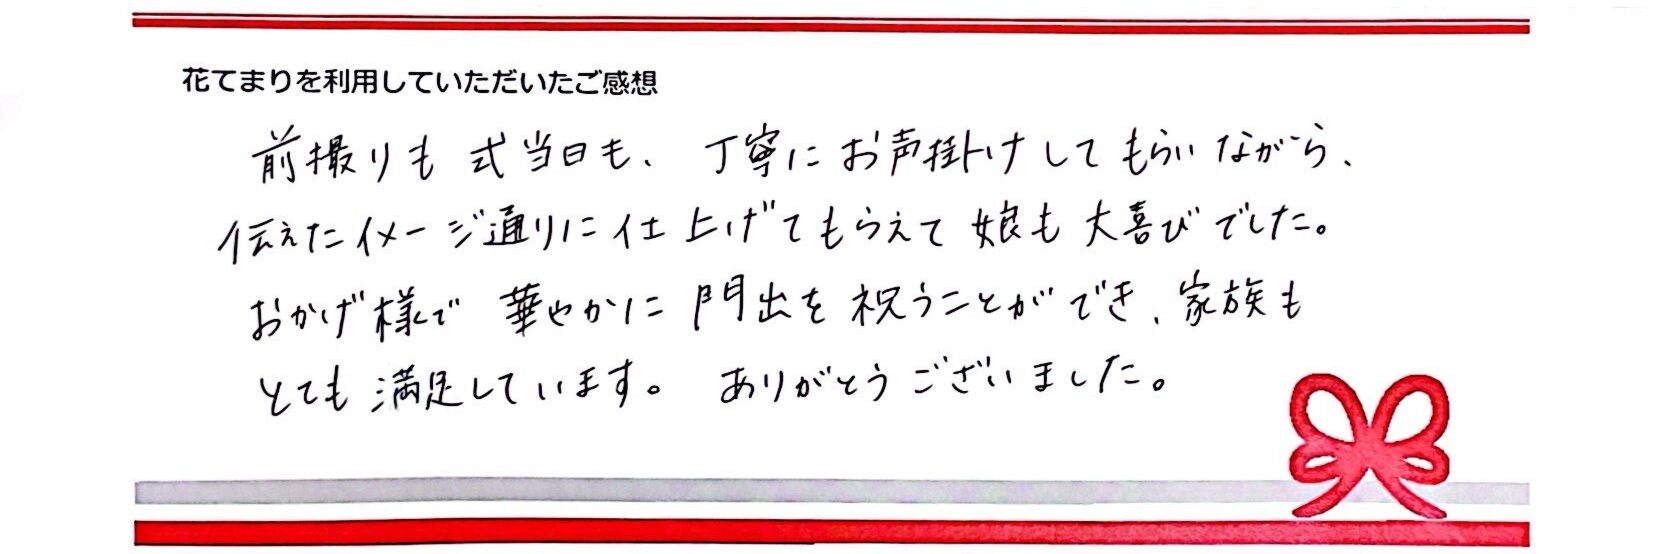 花てまりを利用していただいたご感想
前撮りも 式当日も、 丁寧に お声掛けしてもらいながら、
伝えたイメージ通りに仕上げてもらえて 娘も大喜びでした。
おかげ様で 華やかに 門出を祝うことができ、家族も
とても満足しています。 ありがとうございました。